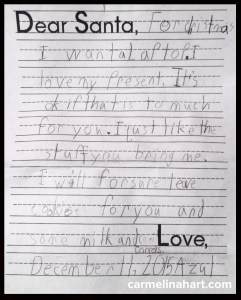 Dear Santa, For christmas
I want a Laptop. I
love my present. It's
ok if that is to much
for you. I just like the
stuff you bring me.
I will forsure leve
cookies for you and
some milk and Love,
Carrots.
December 11, 2015 Azul
carmelinahart.com